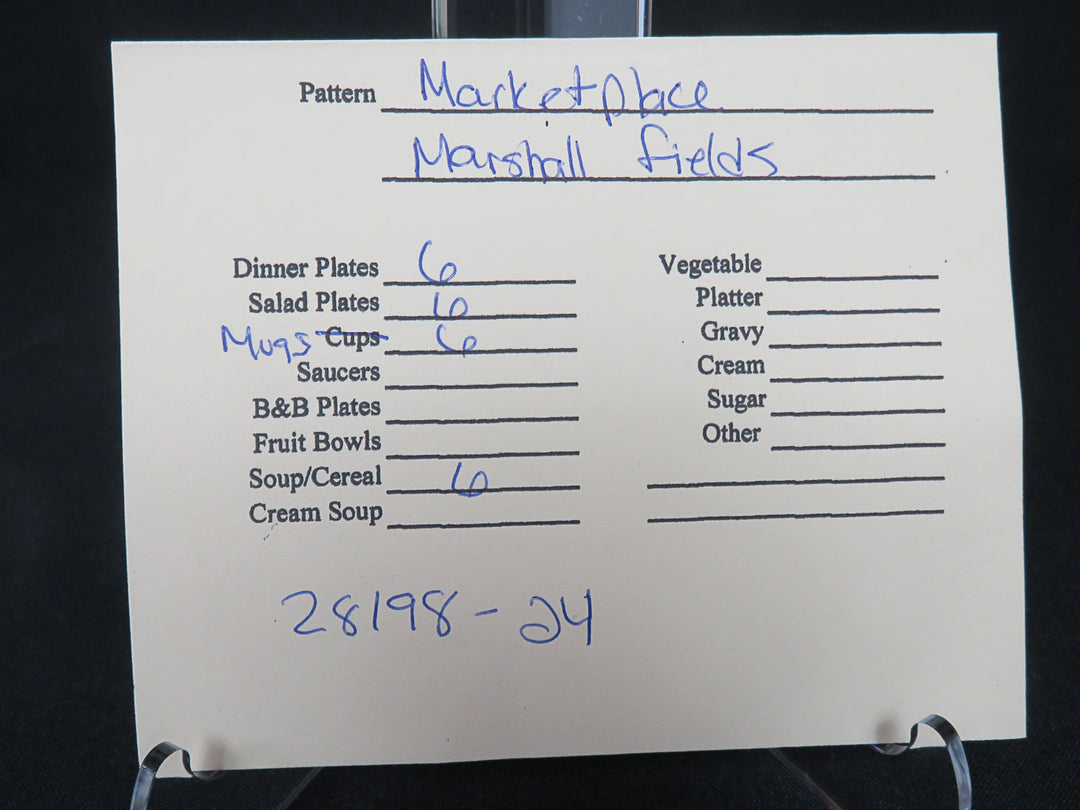 Pattern Marketplace
Marshall Fields
Dinner Plates 6
Salad Plates 6
Mugs Cups 6
Saucers
B&B Plates
Fruit Bowls
Soup/Cereal 6
Cream Soup
Vegetable
Platter
Gravy
Cream
Sugar
Other
28198-24